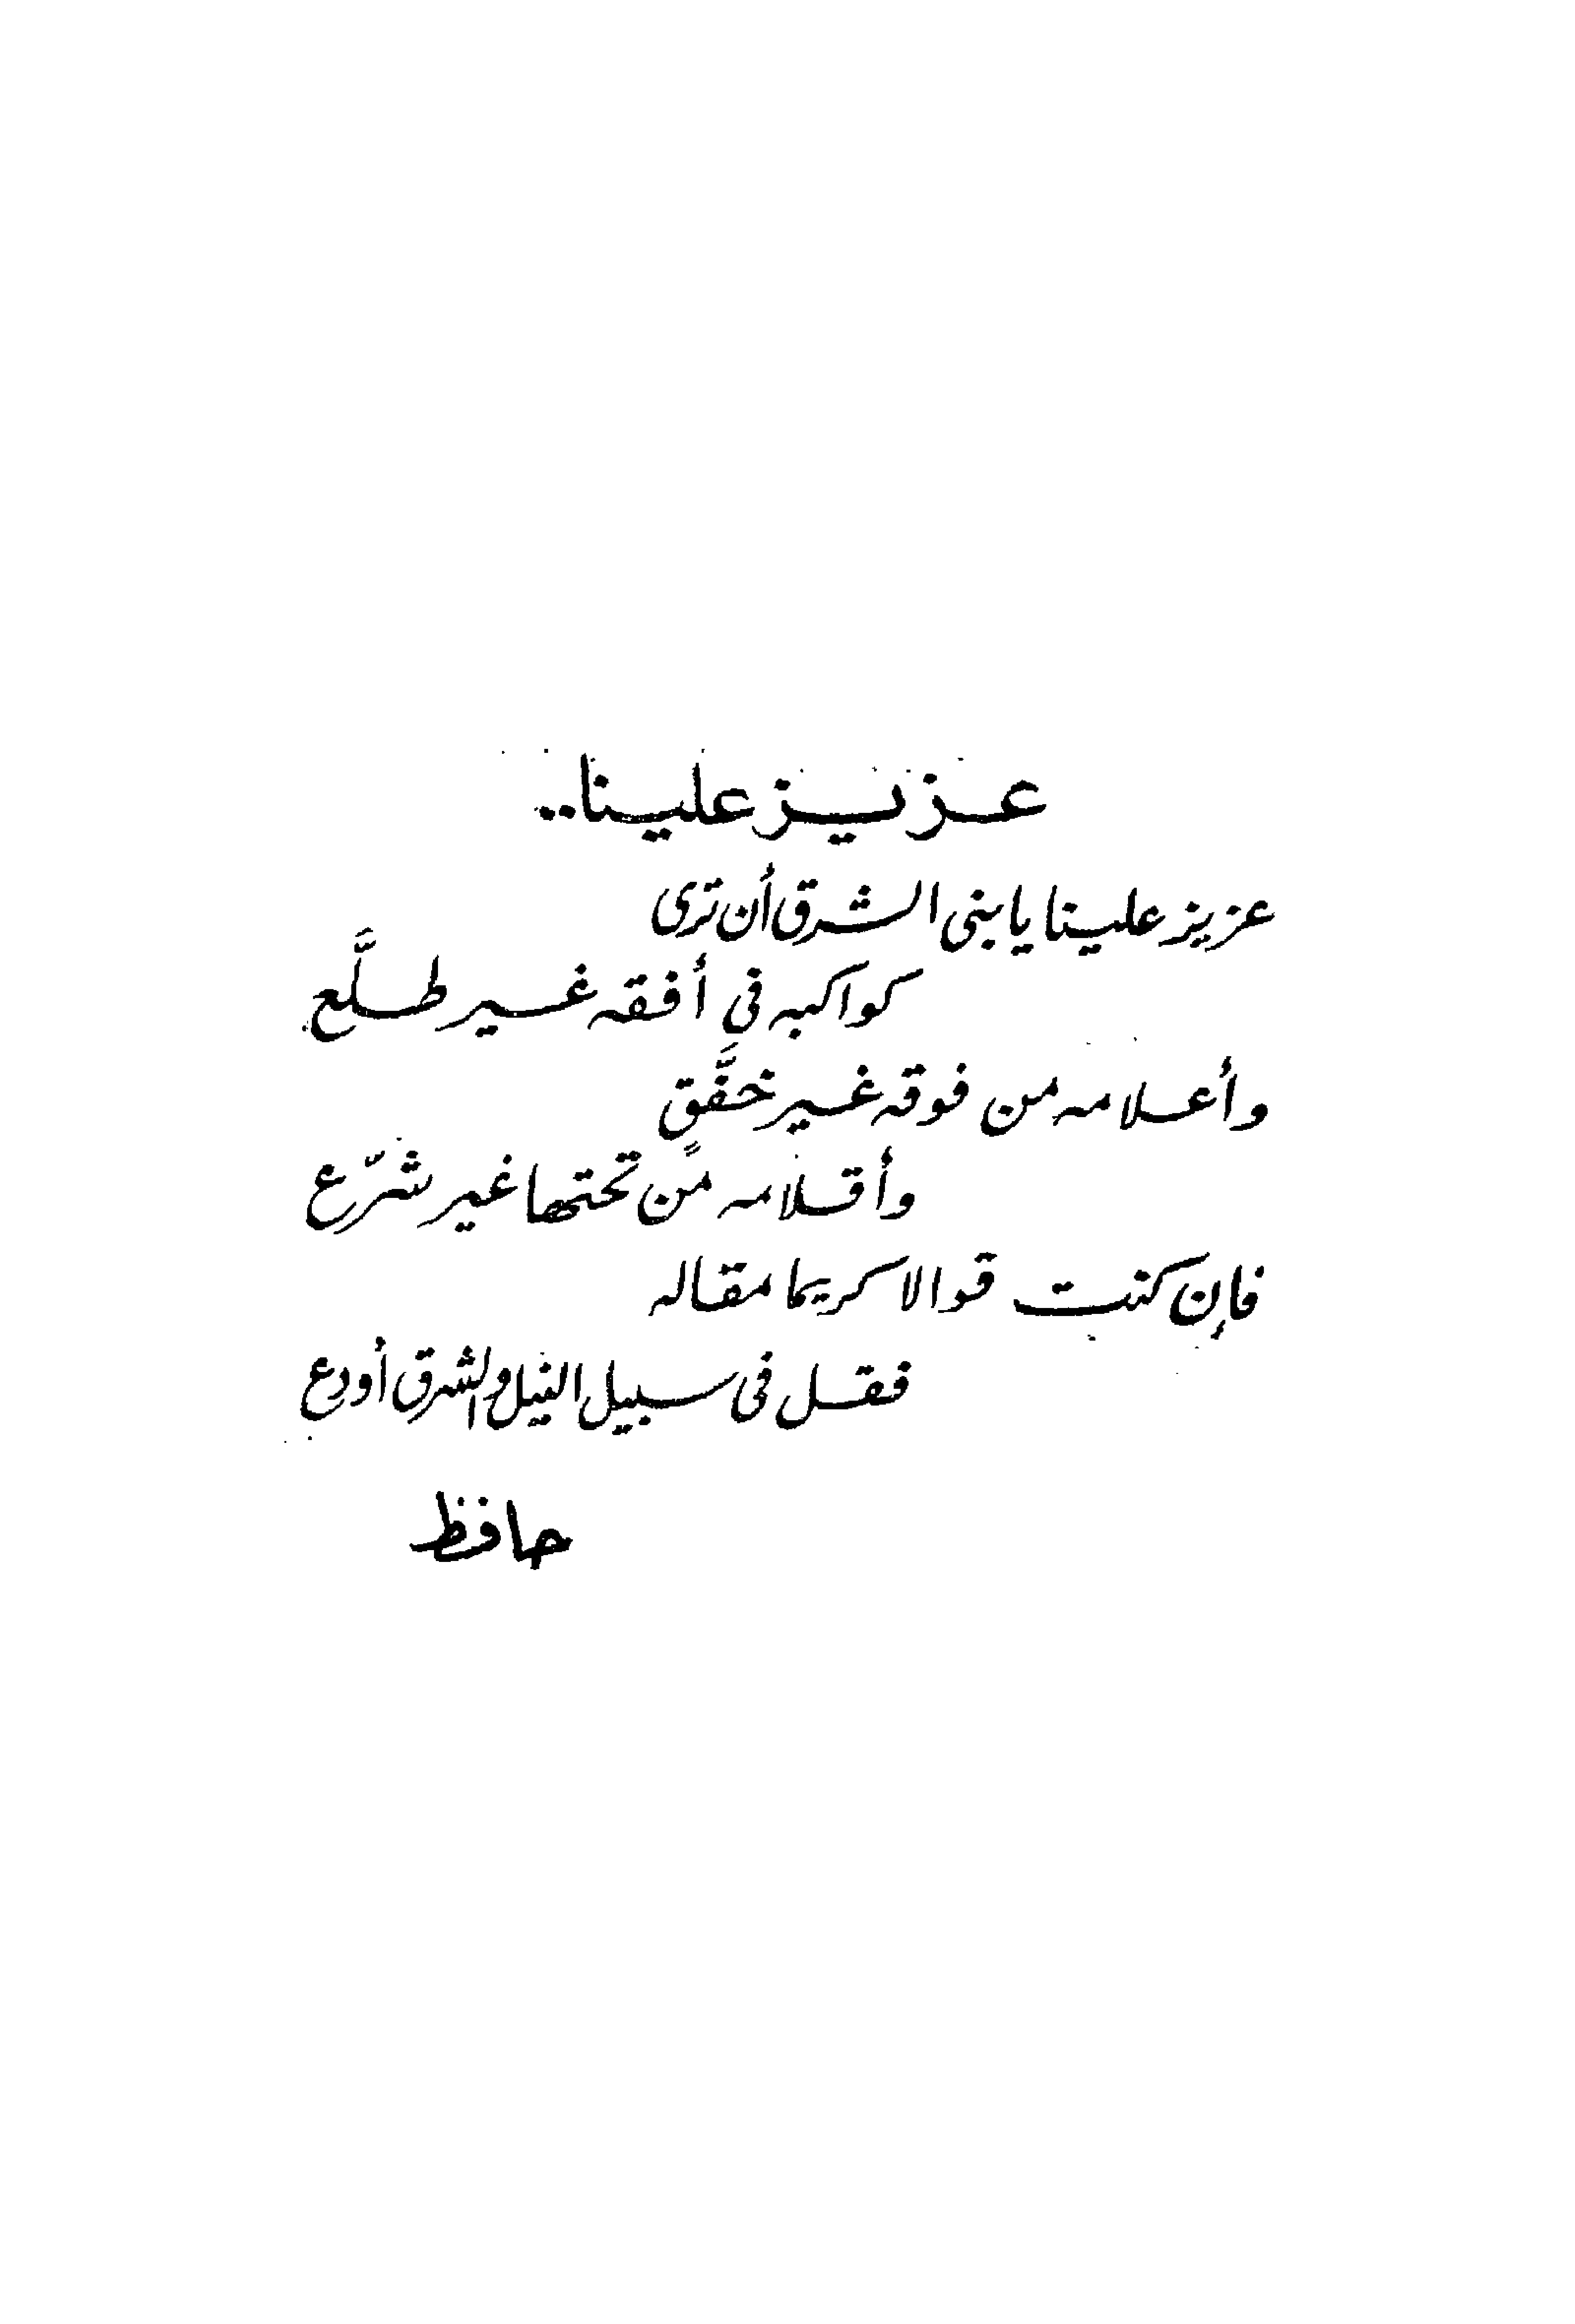 عزيز علينا..
عزيز علينا يا بنى الشرق أن ترى
كواكبه فى أفقه غير طلَّع
وأعلامه من فوقه غير خفَّق
وأقلامه من تحتها غير شرّع
فإن كنت قوالا كريما مقاله
فقل فى سبيل النيل والشرق أودع
حافظ